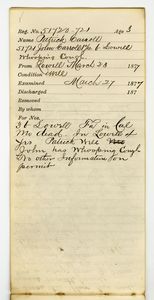 Reg. No. 51720-721 Age 3
Name Patrick Carroll
51721 John Carroll Jr. St. Lowell
Whooping Cough
From Lowell March 23 1877
Condition Well
Examined March 27 1877
Discharged 187
Removed
By whom
For Nos.
St. Lowell Fa in Cal
Mo dead. In Lowell of
Jas Patrick Well
John has Whooping Cough
No other Information on
permit